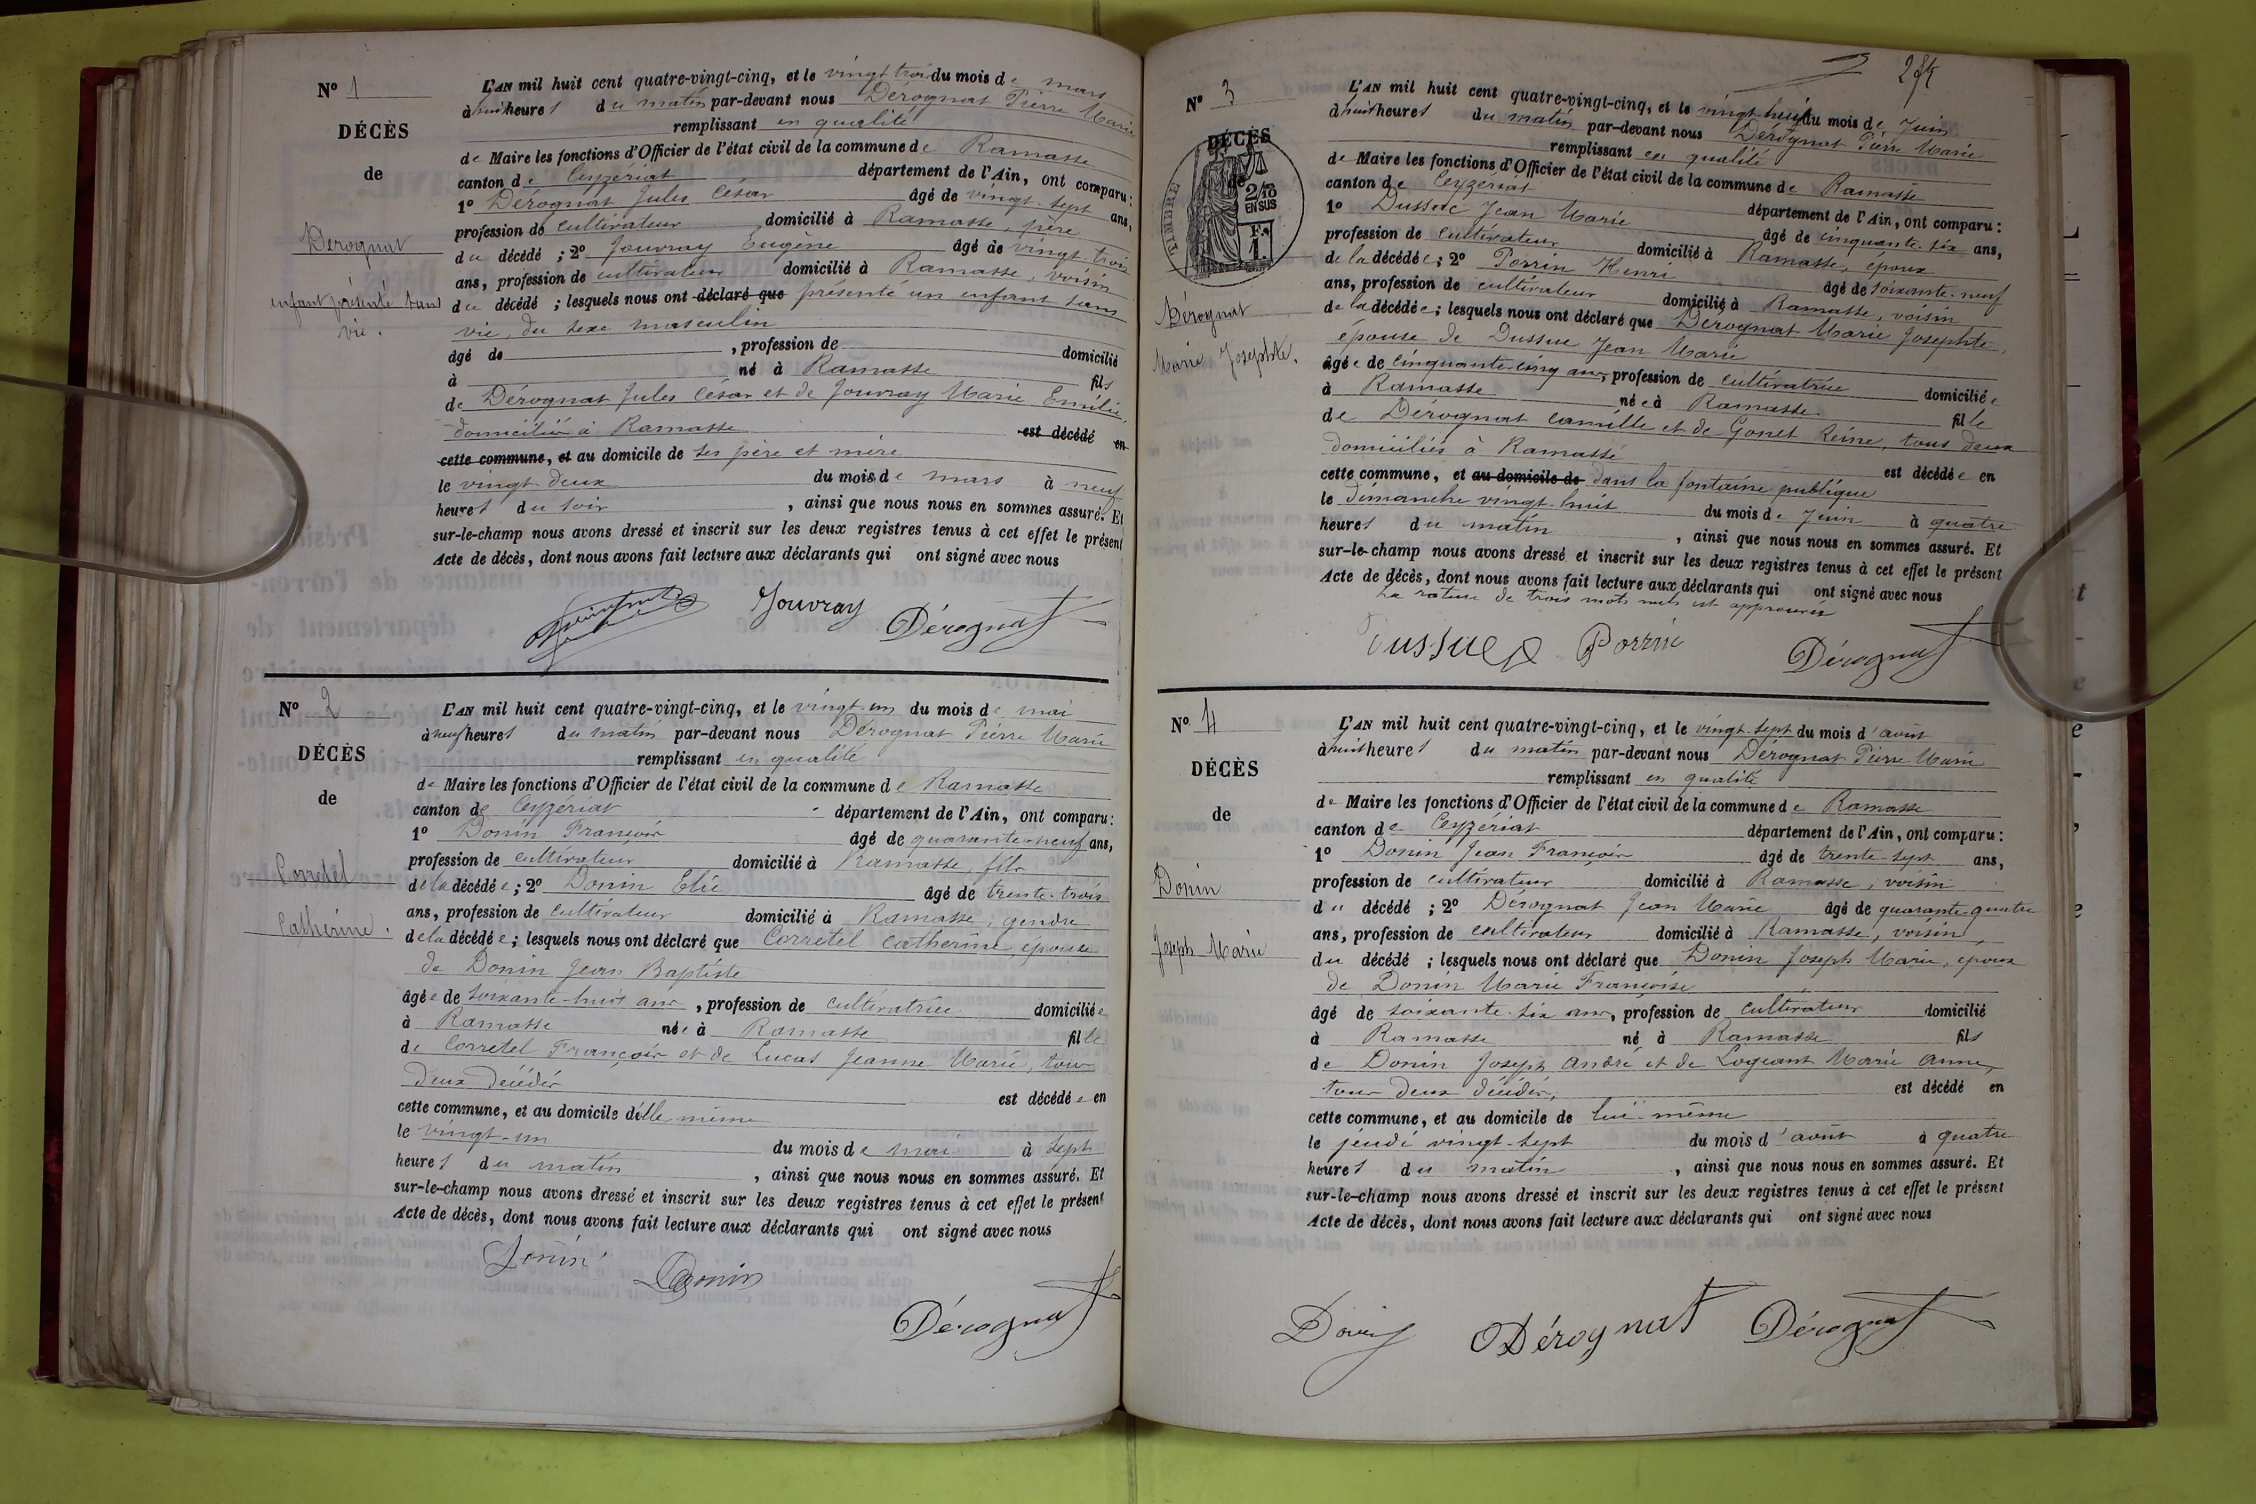 N° 1
DÉCÈS
de
Derognat
enfant présenté sans
vie.
L'AN mil huit cent quatre-vingt-cinq, et le vingt trois du mois de mars
à huit heures du matin par-devant nous Dérognat Pierre Marie
remplissant en qualité
de Maire les fonctions d'Officier de l'état civil de la commune de Ramasse
canton de Ceyzériat département de l'Ain, ont comparu:
1° Dérognat Jules César âgé de vingt-sept ans,
profession de cultivateur domicilié à Ramasse, père
du décédé ; 2° Jouvray Eugène âgé de vingt-trois
ans, profession de cultivateur domicilié à Ramasse, voisin
du décédé ; lesquels nous ont déclaré que présenté un enfant sans
vie, du sexe masculin
âgé de , profession de domicilié
à né à Ramasse fils
de Dérognat Jules César et de Jouvray Marie Emélie,
domiciliés à Ramasse est décédé en
cette commune, et au domicile de ses père et mère
le vingt deux du mois de mars à neuf
heures du soir , ainsi que nous nous en sommes assuré. Et
sur-le-champ nous avons dressé et inscrit sur les deux registres tenus à cet effet le présent
Acte de décès, dont nous avons fait lecture aux déclarants qui ont signé avec nous
Jouvray Dérognat
N° 2
DÉCÈS
de
Corretel
Catherine.
L'AN mil huit cent quatre-vingt-cinq, et le vingt-un du mois de mai
à neuf heures du matin par-devant nous Dérognat Pierre Marie
remplissant en qualité
de Maire les fonctions d'Officier de l'état civil de la commune de Ramasse
canton de Ceyzériat département de l'Ain, ont comparu:
1° Donin François âgé de quarante-neuf ans,
profession de cultivateur domicilié à Ramasse, fils
de la décédée ; 2° Donin Elie âgé de trente-trois
ans, profession de cultivateur domicilié à Ramasse, gendre
de la décédée ; lesquels nous ont déclaré que Corretel Catherine, épouse
de Donin Jean Baptiste
âgée de soixante-huit ans , profession de cultivatrice domiciliée
à Ramasse née à Ramasse fille
de Corretel François et de Lucas Jeanne Marie, tous
deux décédés est décédée en
cette commune, et au domicile d'elle même
le vingt-un du mois de mai à sept
heures du matin , ainsi que nous nous en sommes assuré. Et
sur-le-champ nous avons dressé et inscrit sur les deux registres tenus à cet effet le présent
Acte de décès, dont nous avons fait lecture aux déclarants qui ont signé avec nous
Donin Donin
Dérognat
N° 3
DÉCÈS
de
TIMBRE
2/10
EN SUS
F.
1.
Dérognat
Marie Josephte.
L'AN mil huit cent quatre-vingt-cinq, et le vingt-huit du mois de Juin
à huit heures du matin par-devant nous Dérognat Pierre Marie
remplissant en qualité
de Maire les fonctions d'Officier de l'état civil de la commune de Ramasse
canton de Ceyzériat département de l'Ain, ont comparu:
1° Dussue Jean Marie âgé de cinquante-six ans,
profession de cultivateur domicilié à Ramasse, époux
de la décédée ; 2° Perrin Henri âgé de soixante-neuf
ans, profession de cultivateur domicilié à Ramasse, voisin
de la décédée ; lesquels nous ont déclaré que Dérognat Marie Josephte,
épouse de Dussue Jean Marie
âgée de cinquante-cinq ans, profession de cultivatrice domiciliée
à Ramasse née à Ramasse fille
de Dérognat Camille et de Gonet Reine, tous deux
domiciliés à Ramasse est décédée en
cette commune, et au domicile de dans la fontaine publique
le dimanche vingt-huit du mois de Juin à quatre
heures du matin , ainsi que nous nous en sommes assuré. Et
sur-le-champ nous avons dressé et inscrit sur les deux registres tenus à cet effet le présent
Acte de décès, dont nous avons fait lecture aux déclarants qui ont signé avec nous
La rature de trois mots nuls est approuvée
Dussue Perrin Dérognat
N° 4
DÉCÈS
de
Donin
Joseph Marie
L'AN mil huit cent quatre-vingt-cinq, et le vingt-sept du mois d'août
à huit heures du matin par-devant nous Dérognat Pierre Marie
remplissant en qualité
de Maire les fonctions d'Officier de l'état civil de la commune de Ramasse
canton de Ceyzériat département de l'Ain, ont comparu:
1° Donin Jean François âgé de trente-sept ans,
profession de cultivateur domicilié à Ramasse, voisin
du décédé ; 2° Dérognat Jean Marie âgé de quarante-quatre
ans, profession de cultivateur domicilié à Ramasse, voisin,
du décédé ; lesquels nous ont déclaré que Donin Joseph Marie, époux
de Donin Marie Françoise
âgé de soixante-six ans, profession de cultivateur domicilié
à Ramasse né à Ramasse fils
de Donin Joseph André et de Logeant Marie Anne,
tous deux décédés, est décédé en
cette commune, et au domicile de lui-même
le jeudi vingt-sept du mois d'août à quatre
heures du matin , ainsi que nous nous en sommes assuré. Et
sur-le-champ nous avons dressé et inscrit sur les deux registres tenus à cet effet le présent
Acte de décès, dont nous avons fait lecture aux déclarants qui ont signé avec nous
Donin Dérognat Dérognat